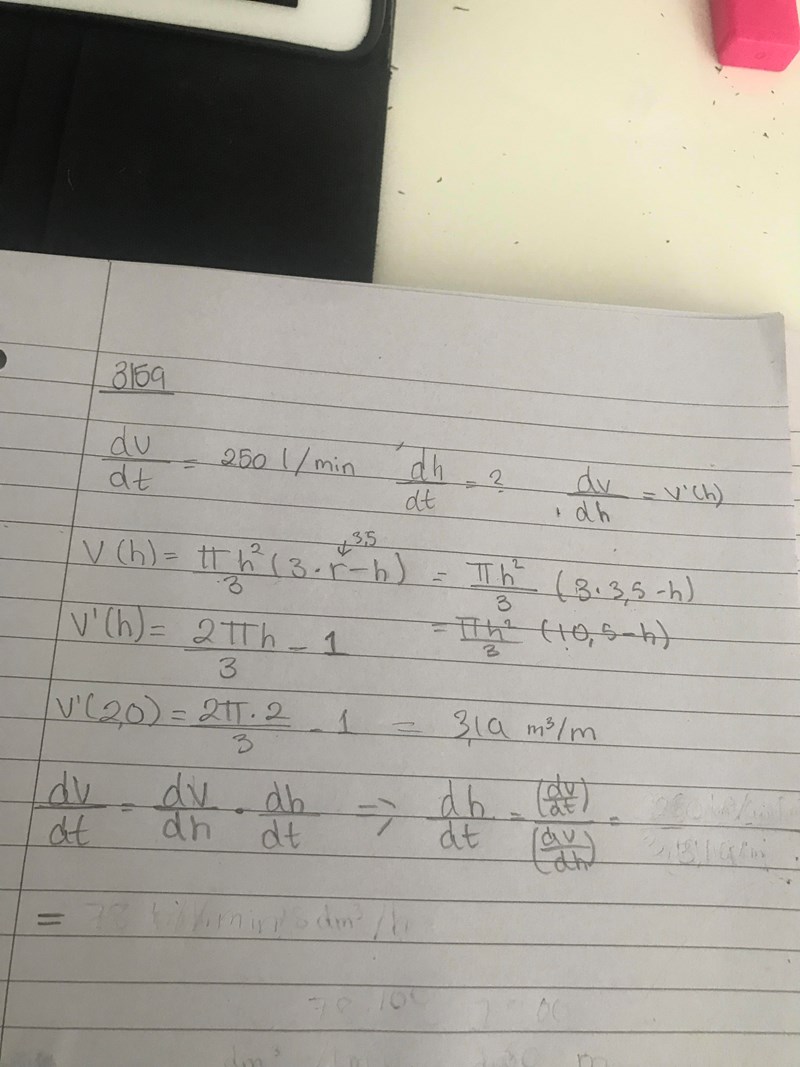 3159
dv/dt = 250 l/min dh/dt = ? dv/dh = v'(h)
3,5
V(h) = πh²/3 (3·r-h) = πh²/3 (3·3,5-h)
V'(h) = 2πh/3 - 1 = πh²/3 (10,5-h)
V'(2,0) = 2π·2/3 - 1 = 3,19 m³/m
dv/dt = dv/dh · dh/dt => dh/dt = (dv/dt)/(dv/dh) =
=